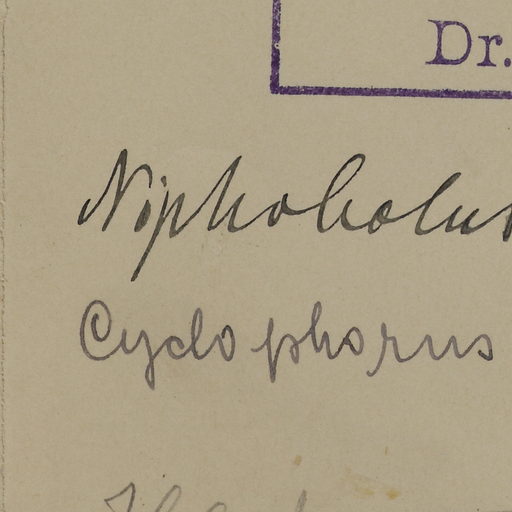 Dr.
Niphobolus
Cyclophorus